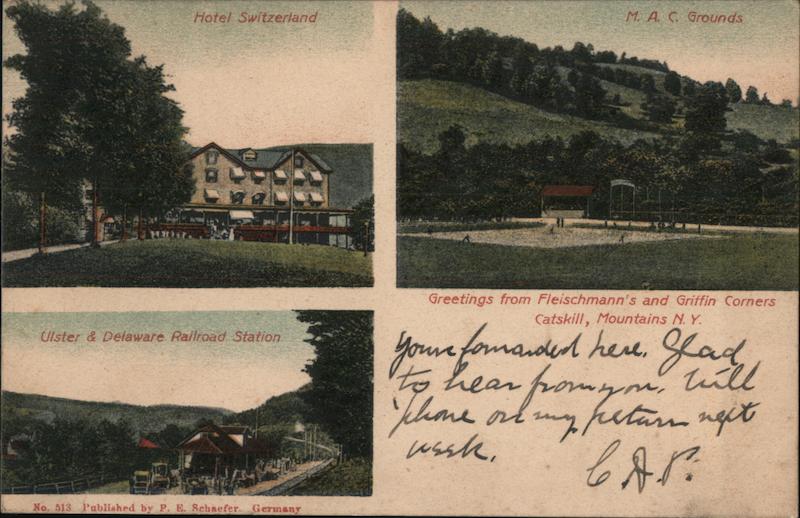 Hotel Switzerland
M. A. C. Grounds
Greetings from Fleischmann's and Griffin Corners
Catskill, Mountains N. Y.
Ulster & Delaware Railroad Station
Yours forwarded here. Glad
to hear from you. Will
'phone on my return next
week.
C. A. P.
No. 513 Published by P. E. Schaefer. Germany